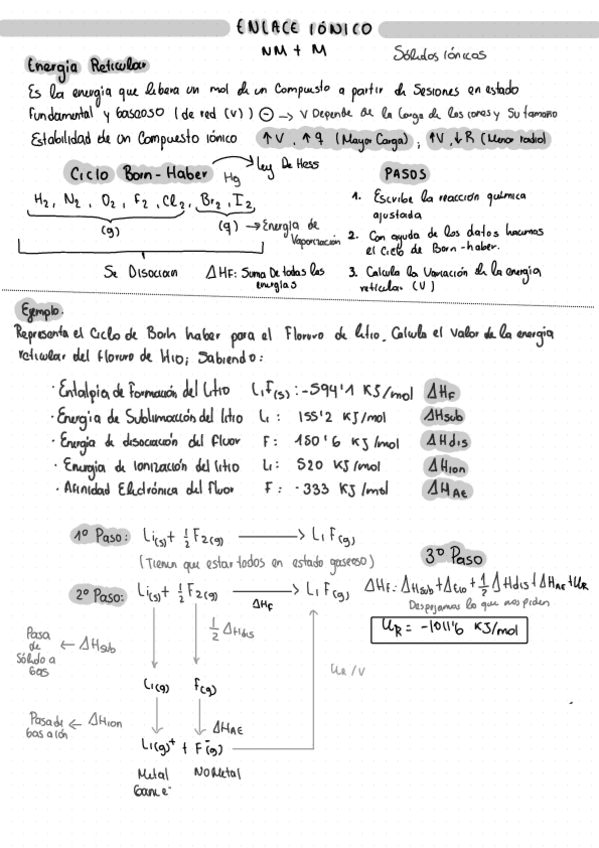 ENLACE IÓNICO
NM + M
Sólidos iónicos
Energia Reticular
Es la energia que libera un mol de un Compuesto a partir de Sesiones en estado
Fundamental y gaseoso (de red (V)) ⊖ → V Depende de la Carga de los iones y Su tamaño
Estabilidad de un Compuesto iónico ↑V, ↑q (Mayor Carga); ↑V, ↓R (Menor radio)
Ciclo Born-Haber → Ley De Hess
Hg
H₂, N₂, O₂, F₂, Cl₂, Br₂, I₂
(g) (g) → Energía de
Vaporización
Se Disocian ΔHF: Suma De todas las
energías
PASOS
1. Escribe la reacción química
ajustada
2. Con ayuda de los datos hacemos
el Ciclo de Born-haber.
3. Calcula la Variación de la energía
reticular (V)
Ejemplo:
Representa el Ciclo de Born haber para el Floruro de litio. Calcula el Valor de la energia
reticular del floruro de litio; Sabiendo:
· Entalpia de Formación del Litio LiF(s): -594'1 KJ/mol ΔHF
· Energia de Sublimación del litio Li: 155'2 KJ/mol ΔHsub
· Energia de disociación del fluor F: 150'6 KJ/mol ΔHdis
· Energia de Ionización del litio Li: 520 KJ/mol ΔHion
· Afinidad Electrónica del fluor F: -333 KJ/mol ΔHAE
1º Paso: Li(s) + 1/2 F₂(g) → LiF(g)
(Tienen que estar todos en estado gaseoso)
2º Paso: Li(s) + 1/2 F₂(g) → LiF(g)
ΔHF
1/2 ΔHdis
Pasa
de
Sólido a
Gas
← ΔHsub
Li(g) F(g)
Pasa de
Gas a ión
← ΔHion
ΔHAE
Li(g)⁺ + F⁻(g)
Metal No Metal
Gana e⁻
UR/V
3º Paso
ΔHF: ΔHsub + ΔEio + 1/2 ΔHdis + ΔHAE + UR
Despejamos lo que nos piden
UR = -1011'6 KJ/mol